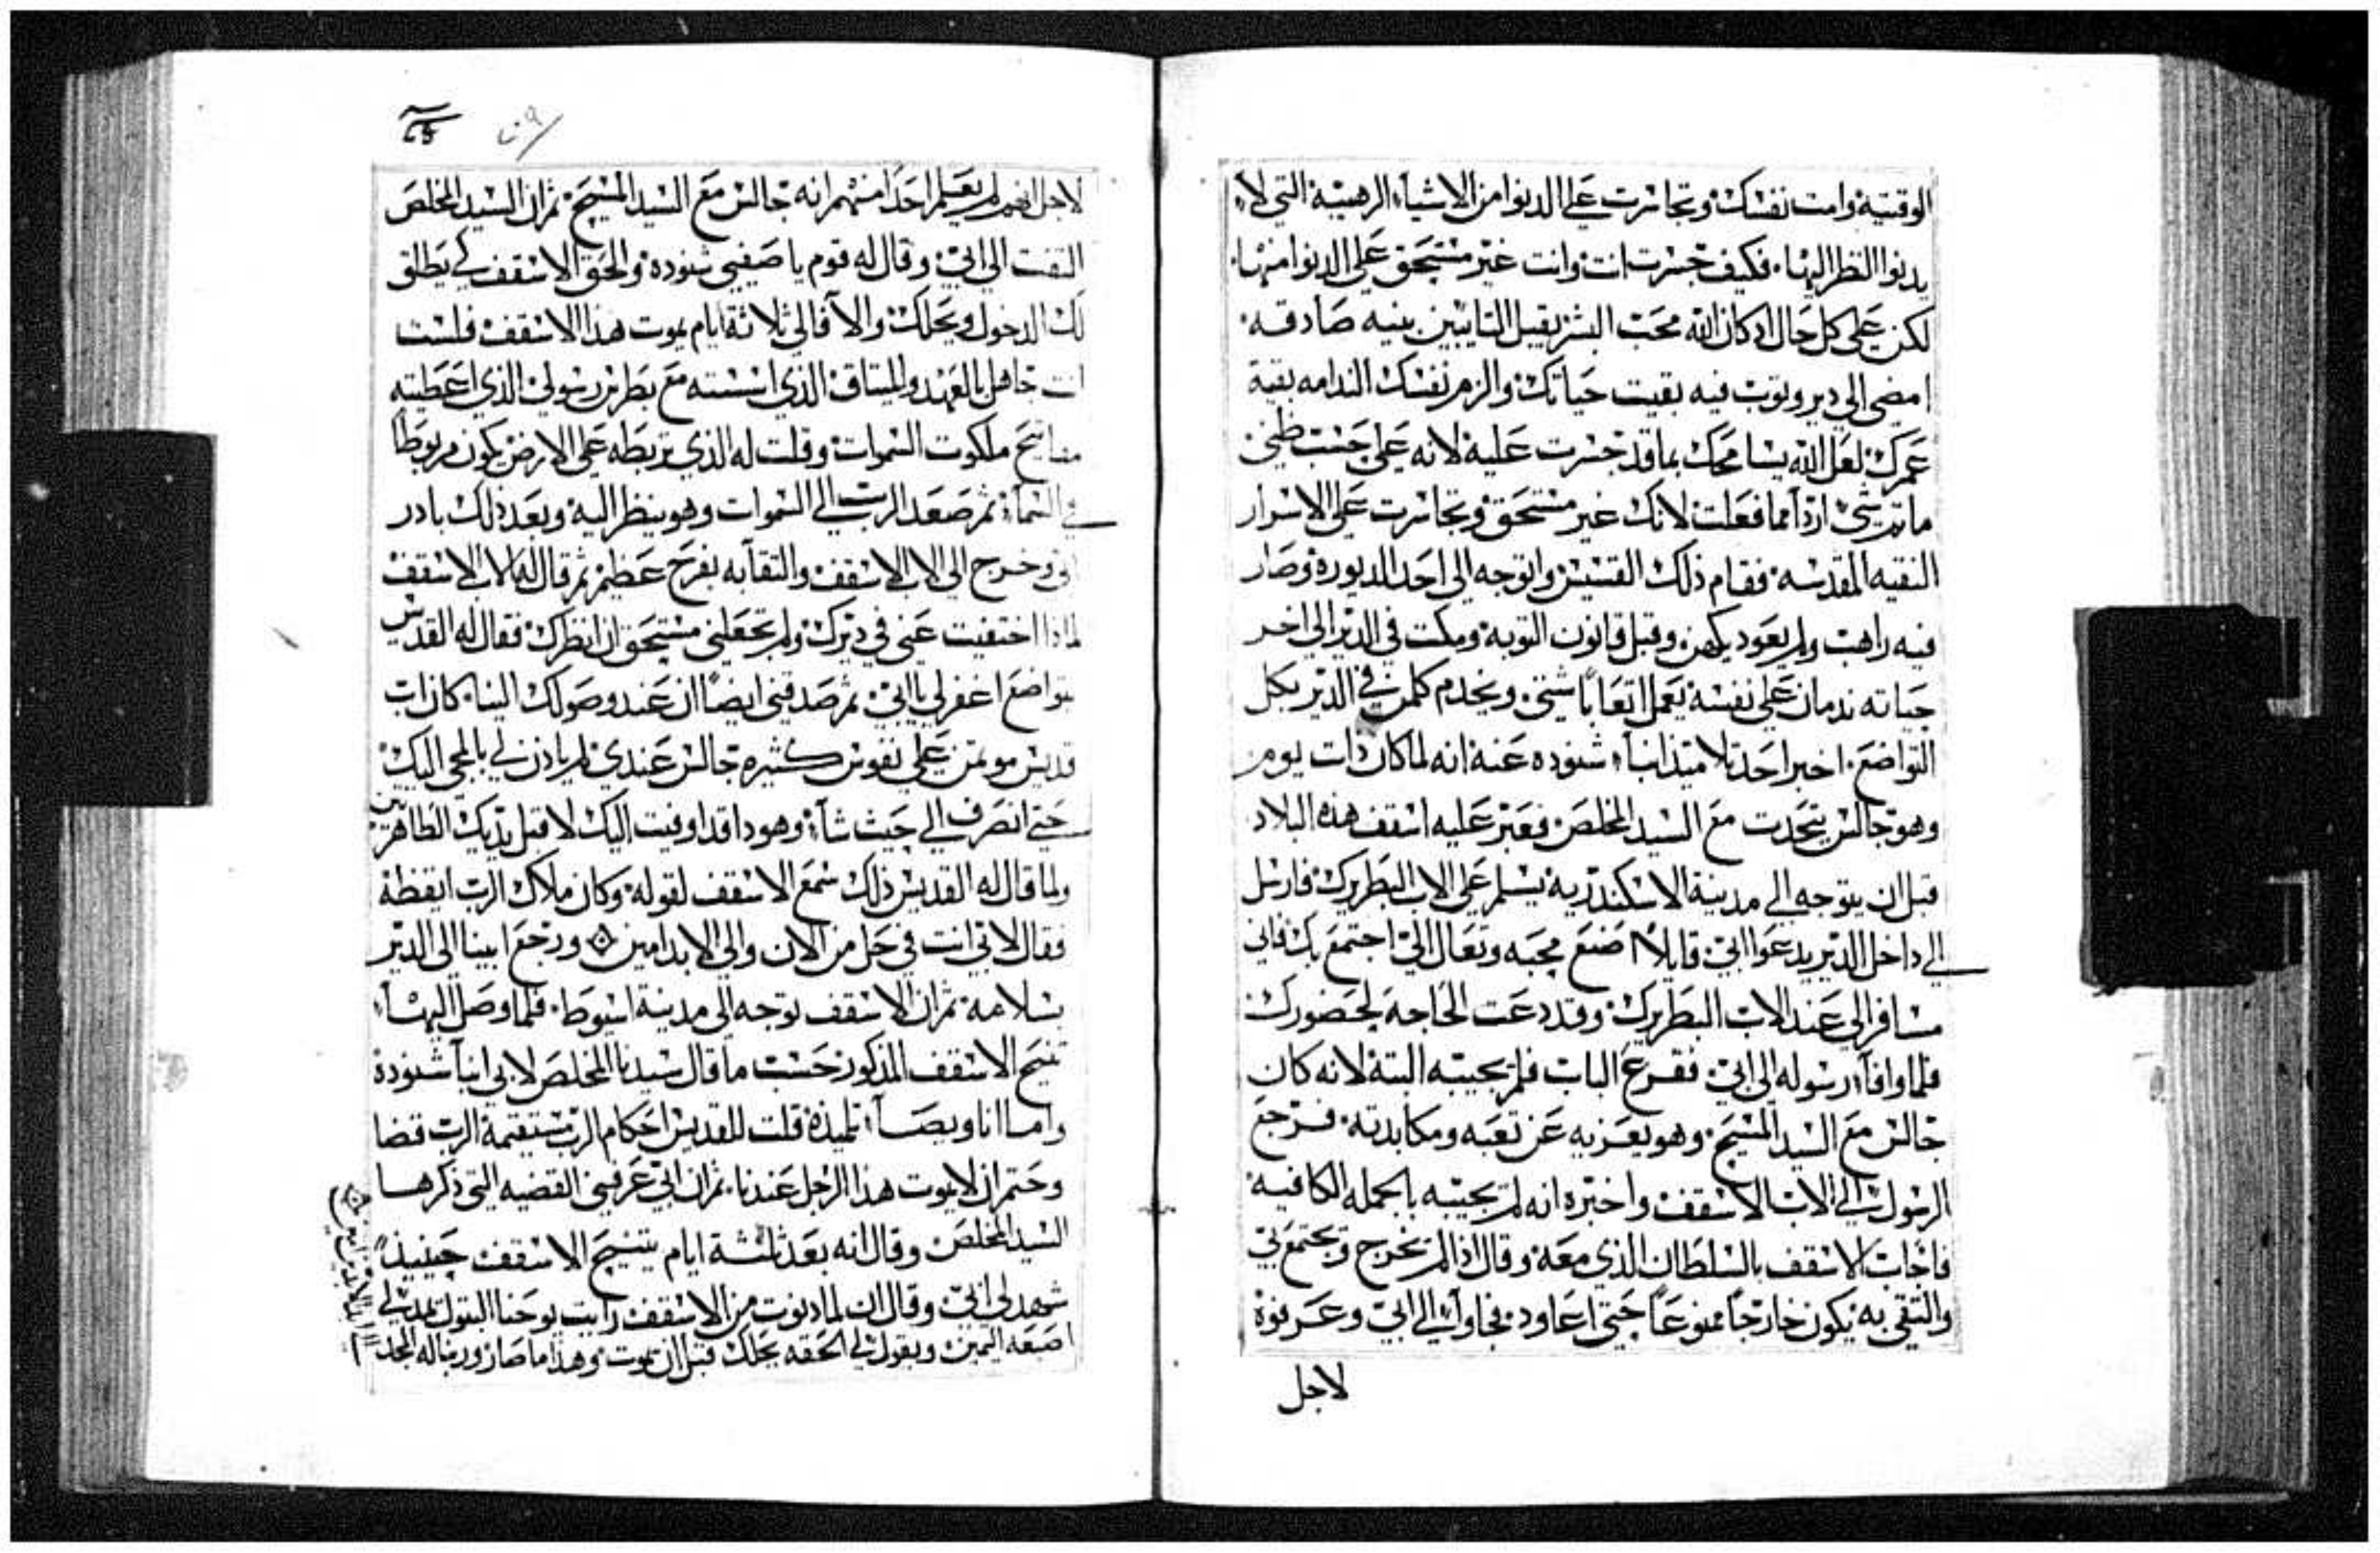 الوقتية وامت نفسك وتجاسرت علي الدنوا من الاشياء الرهيبة التي لا
يدنوا النظر اليها. فكيف جسرت انت وانت غير مستحق علي الدنوا منها.
لكن علي كل حال اد كان الله محب البشر يقبل التايبين بنيه صادقه.
امضي الي دير وتوب فيه بقيت حياتك والزم نفسك الندامه بقية
عمرك لعل الله يسامحك بما قد جسرت عليه لانه علي حسب ظني
ما شي اردا مما فعلت لانك غير مستحق وتجاسرت علي الاسرار
النقيه المقدسه. فقام ذلك القسيس واتوجه الي احد الديوره وصار
فيه راهب ولم يعود يكهن وقبل قانون التوبه ومكت في الدير الي اخر
حياته ندمان علي نفسه يعمل اتعابا شتي. ويخدم كلمن في الدير بكل
التواضع. اخبر احد تلاميذ انباء شنوده عنه انه لما كان ذات يوم
وهو جالس يتحدت مع السيد المخلص فعبر عليه اسقف هذه البلاد
قبل ان يتوجه الي مدينة الاسكندرية يسلم علي الاب البطريرك فارسل
الي داخل الدير يدعوا ابي قايلا اصنع محبه وتعال الي اجتمع بك فاني
مسافر الي عند الاب البطريرك وقد دعت الحاجه لحضورك
فلما وافاء رسوله الي ابي فقرع الباب فلم يجيبه البتة لانه كان
جالس مع السيد المسيح. وهو يعزيه عن تعبه ومكابدته. فرجع
الرسول الي الاب الاسقف واخبره انه لم يجيبه بالجمله الكافيه
فاجاب الاسقف بالسلطان الذي معه وقال اذا لم تخرج وتجتمع بي
والتقي به يكون خارجا ممنوعا حتي اعاود. فجاوا الي ابي وعرفوه
لاجل
لاجل انهم لم يعلم احدا منهم انه جالس مع السيد المسيح. ثم ان السيد المخلص
التفت الي ابي. وقال له قوم يا صفيي شنوده والحق الاسقف كي يطلق
لك الدخول ويحلك والا فالي ثلاثة ايام يموت هذا الاسقف فلست
انت جاهل بالعهد والميتاق الذي اسسته مع بطرس رسولي الذي اعطيته
مفاتيح ملكوت السموات وقلت له الذي تربطه علي الارض يكون مربوطا
في السماء ثم صعد الرب الي السموات وهو ينظر اليه وبعد ذلك بادر
ابي وخرج الي الاب الاسقف والتقا به بفرح عظيم ثم قال له الاب الاسقف
لماذا اختفيت عني في ديرك ولم تجعلني مستحق ان انظرك فقال له القديس
بتواضع اغفر لي يا ابي. ثم صدقني ايضا ان عند وصولك الينا. كان اب
قديس موتمن علي نفوس كثيره جالس عندي لم ياذن لي بالمجي اليك
حتي انصرف الي حيث شاء وهوذا قد اوفيت اليك لاقبل يديك الطاهرتين
ولما قال له القديس ذلك سمع الاسقف لقوله وكان ملاك الرب ايقظه
فقال لابي انت في حل من الان والي الابد امين ورجع ابينا الي الدير
بسلامه. ثم ان الاسقف توجه الي مدينة اسيوط. فلما وصل اليها
تنيح الاسقف المذكور حسب ما قال سيدنا المخلص لابي انبا شنودة
واما انا ويصا تلميذه قلت للقديس احكام الرب مستقيمة الرب قضا
وحتم ان لا يموت هذا الرجل عندنا. ثم ان ابي عرفني القضيه التي ذكرها
السيد المخلص وقال انه بعد ثلثة ايام يتنيح الاسقف حينيذ
شهد لي ابي وقال ان لما دنوت من الاسقف رايت يوحنا البتول يمد لي
اصبعه اليمين ويقول لي الحقه يحلك قبل ان يموت وهذا ما صار وربنا له المجد